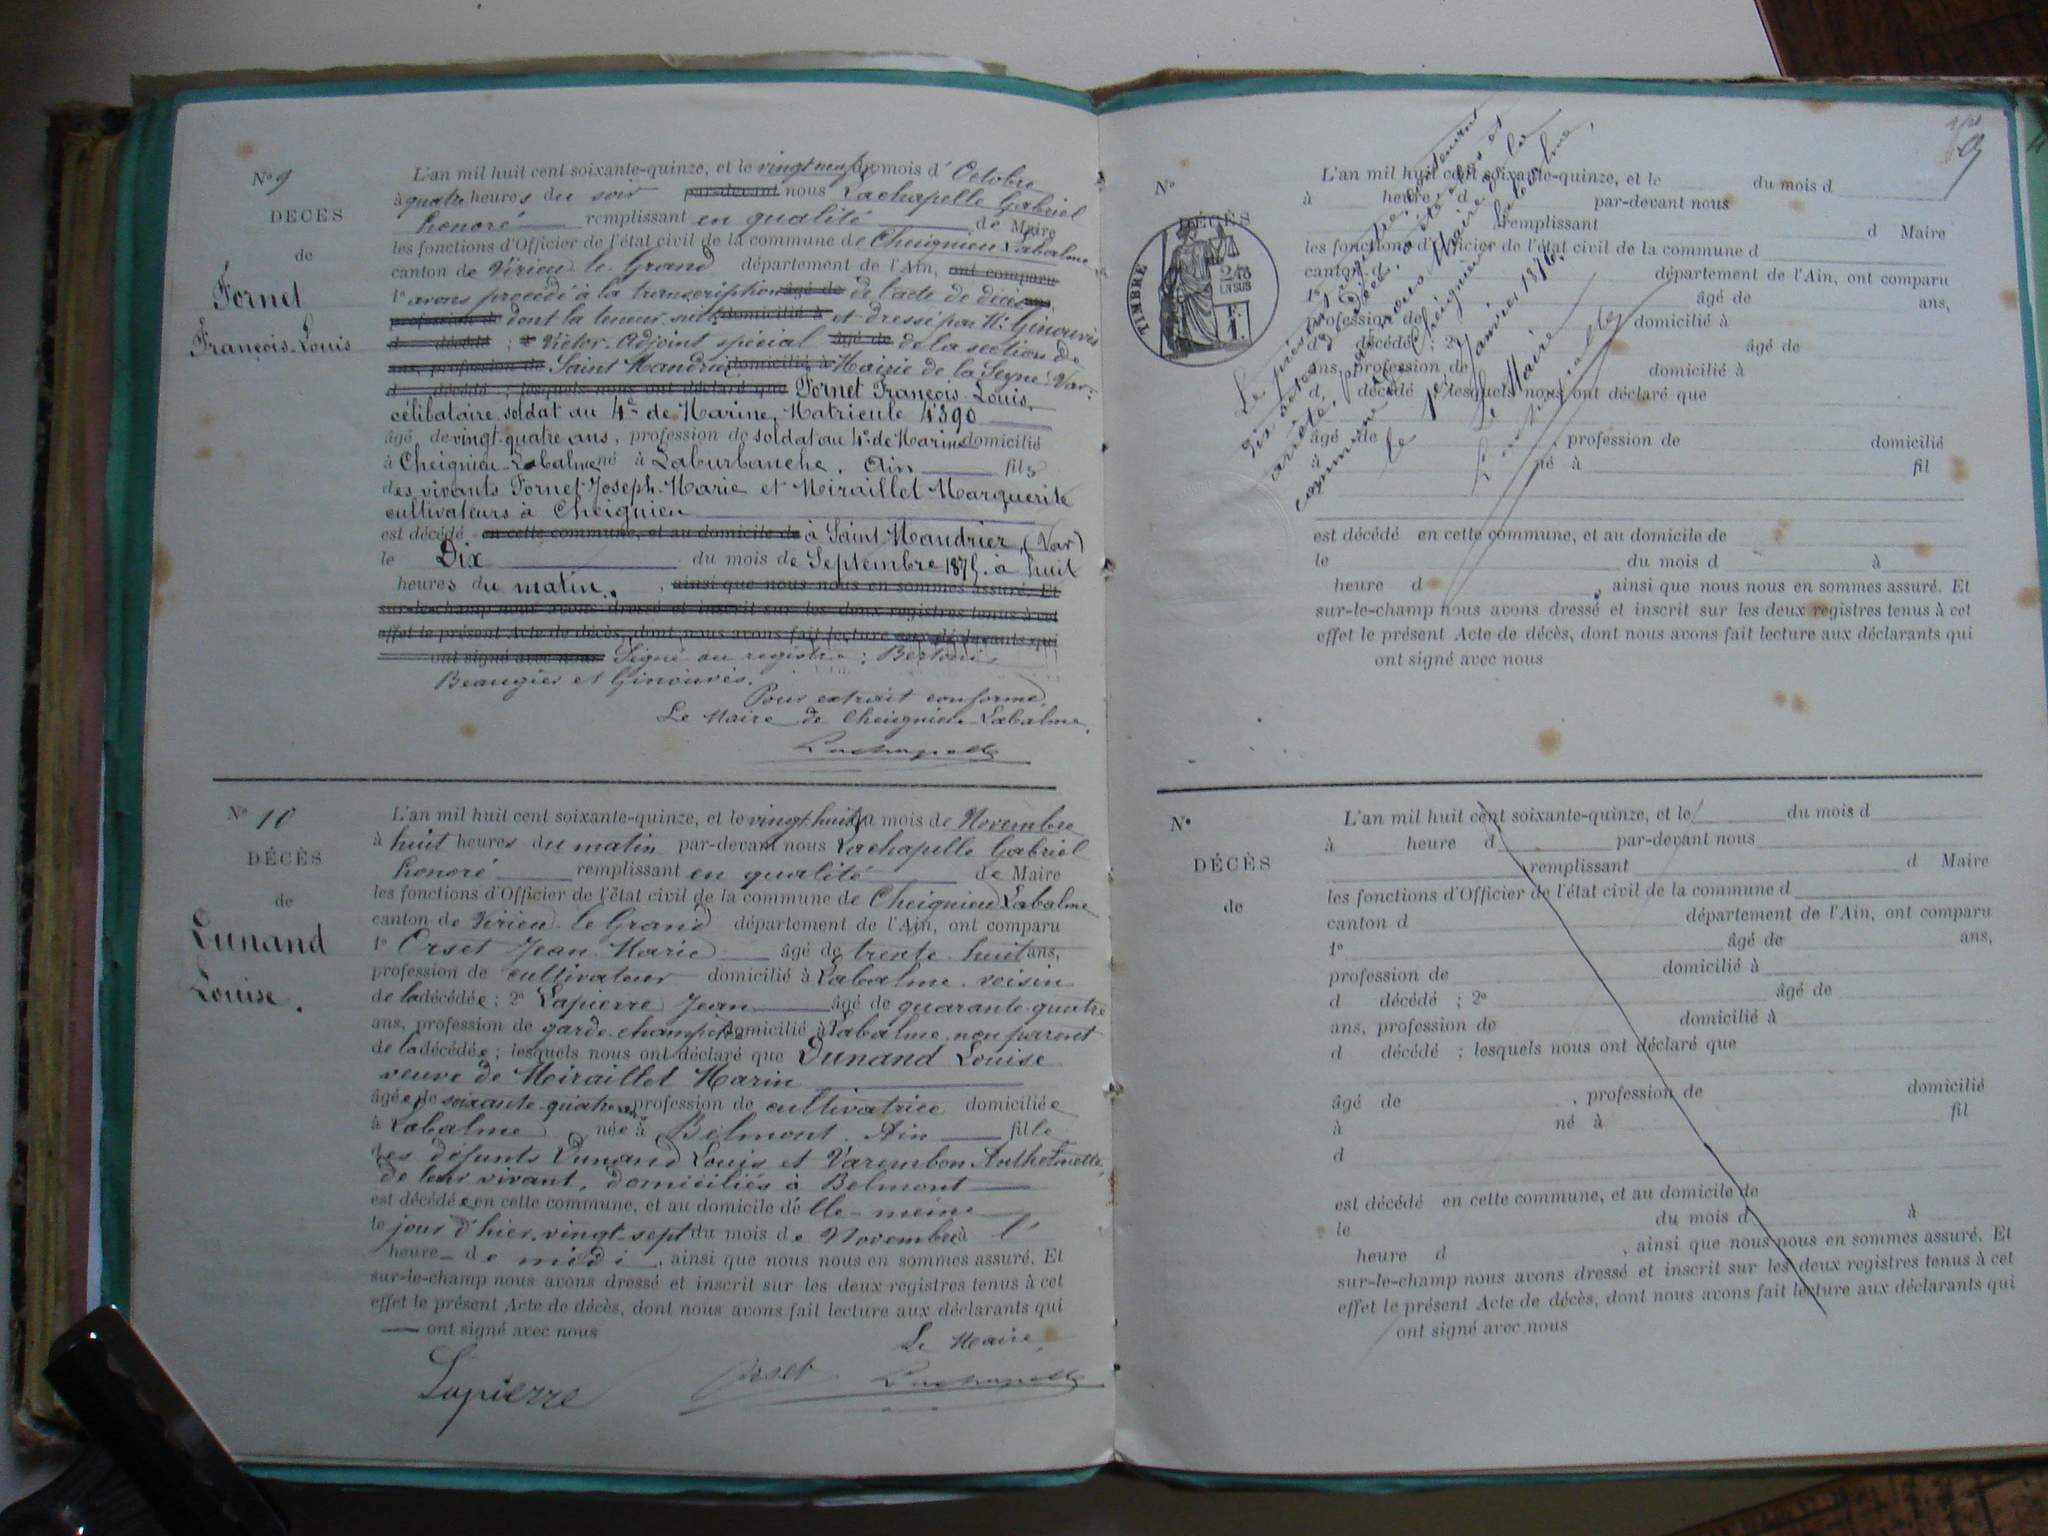 N° 9
DÉCÈS
de
Fornet
François-Louis
L'an mil huit cent soixante-quinze, et le vingt neuf du mois d' Octobre
à quatre heures du soir par-devant nous Lachapelle Gabriel
honoré remplissant en qualité de Maire
les fonctions d'Officier de l'état civil de la commune de Cheignieu Labalme
canton de Virieu-le-Grand département de l'Ain, ont comparu
1° avons procédé à la transcription âgé de de l'acte de décès ans,
profession de dont la teneur suit domicilié à et dressé par Mr Ginouvès
d décédé ; 2° Victor Adjoint spécial âgé de de la section de
ans, profession de Saint Mandrier domicilié à Mairie de la Seyne Var:
d décédé ; lesquels nous ont déclaré que Fornet François-Louis,
célibataire soldat au 4e de Marine, Matricule 4390
âgé de vingt-quatre ans, profession de soldat au 4e de Marine domicilié
à Cheignieu-Labalme né à Laburbanche, Ain fils
des vivants Fornet Joseph-Marie et Miraillet Marguerite
cultivateurs à Cheignieu
est décédé en cette commune, et au domicile de à Saint Mandrier, (Var)
le Dix du mois de Septembre 1875 à huit
heures du matin. , ainsi que nous nous en sommes assuré. Et
sur-le-champ nous avons dressé et inscrit sur les deux registres tenus à cet
effet le présent Acte de décès, dont nous avons fait lecture aux déclarants qui
ont signé avec nous Signé au registre :
Beaugier et Ginouvès.
Pour extrait conforme,
Le Maire de Cheignieu-Labalme,
Lachapelle
N° 10
DÉCÈS
de
Dunand
Louise.
L'an mil huit cent soixante-quinze, et le vingt-huit du mois de Novembre
à huit heures du matin par-devant nous Lachapelle Gabriel
honoré remplissant en qualité de Maire
les fonctions d'Officier de l'état civil de la commune de Cheignieu Labalme
canton de Virieu-le-Grand département de l'Ain, ont comparu
1° Orset Jean-Marie âgé de trente-huit ans,
profession de cultivateur domicilié à Labalme voisin
de la décédée ; 2° Lapierre Jean âgé de quarante-quatre
ans, profession de garde-champêtre domicilié à Labalme non parent
de la décédée ; lesquels nous ont déclaré que Dunand Louise
veuve de Miraillet Marin
âgée de soixante-quatre ans profession de cultivatrice domiciliée
à Labalme née à Belmont, Ain fille
des défunts Dunand Louis et Varembon Anthelmette
de leur vivant, domiciliés à Belmont
est décédée en cette commune, et au domicile d'elle-même
le jour d'hier, vingt-sept du mois de Novembre à
heure de midi, ainsi que nous nous en sommes assuré. Et
sur-le-champ nous avons dressé et inscrit sur les deux registres tenus à cet
effet le présent Acte de décès, dont nous avons fait lecture aux déclarants qui
ont signé avec nous
Le Maire,
Lapierre Orset Lachapelle
9
N°
DÉCÈS
TIMBRE
L'an mil huit cent soixante-quinze, et le du mois d
à heure d par-devant nous
remplissant d Maire
les fonctions d'Officier de l'état civil de la commune d
canton d département de l'Ain, ont comparu
1° âgé de ans,
profession de domicilié à
d décédé ; 2° âgé de
ans, profession de domicilié à
d décédé ; lesquels nous ont déclaré que
âgé de , profession de domicilié
à né à fil
est décédé en cette commune, et au domicile de
le du mois d à
heure d , ainsi que nous nous en sommes assuré. Et
sur-le-champ nous avons dressé et inscrit sur les deux registres tenus à cet
effet le présent Acte de décès, dont nous avons fait lecture aux déclarants qui
ont signé avec nous
Le présent registre contenant
dix actes de décès, a été clos et
arrêté, par nous Maire de la
commune de Cheignieu Labalme,
le 1er Janvier 1876.
Le Maire
Lachapelle
N°
DÉCÈS
de
L'an mil huit cent soixante-quinze, et le du mois d
à heure d par-devant nous
remplissant d Maire
les fonctions d'Officier de l'état civil de la commune d
canton d département de l'Ain, ont comparu
1° âgé de ans,
profession de domicilié à
d décédé ; 2° âgé de
ans, profession de domicilié à
d décédé ; lesquels nous ont déclaré que
âgé de , profession de domicilié
à né à fil
d
est décédé en cette commune, et au domicile de
le du mois d à
heure d , ainsi que nous nous en sommes assuré. Et
sur-le-champ nous avons dressé et inscrit sur les deux registres tenus à cet
effet le présent Acte de décès, dont nous avons fait lecture aux déclarants qui
ont signé avec nous